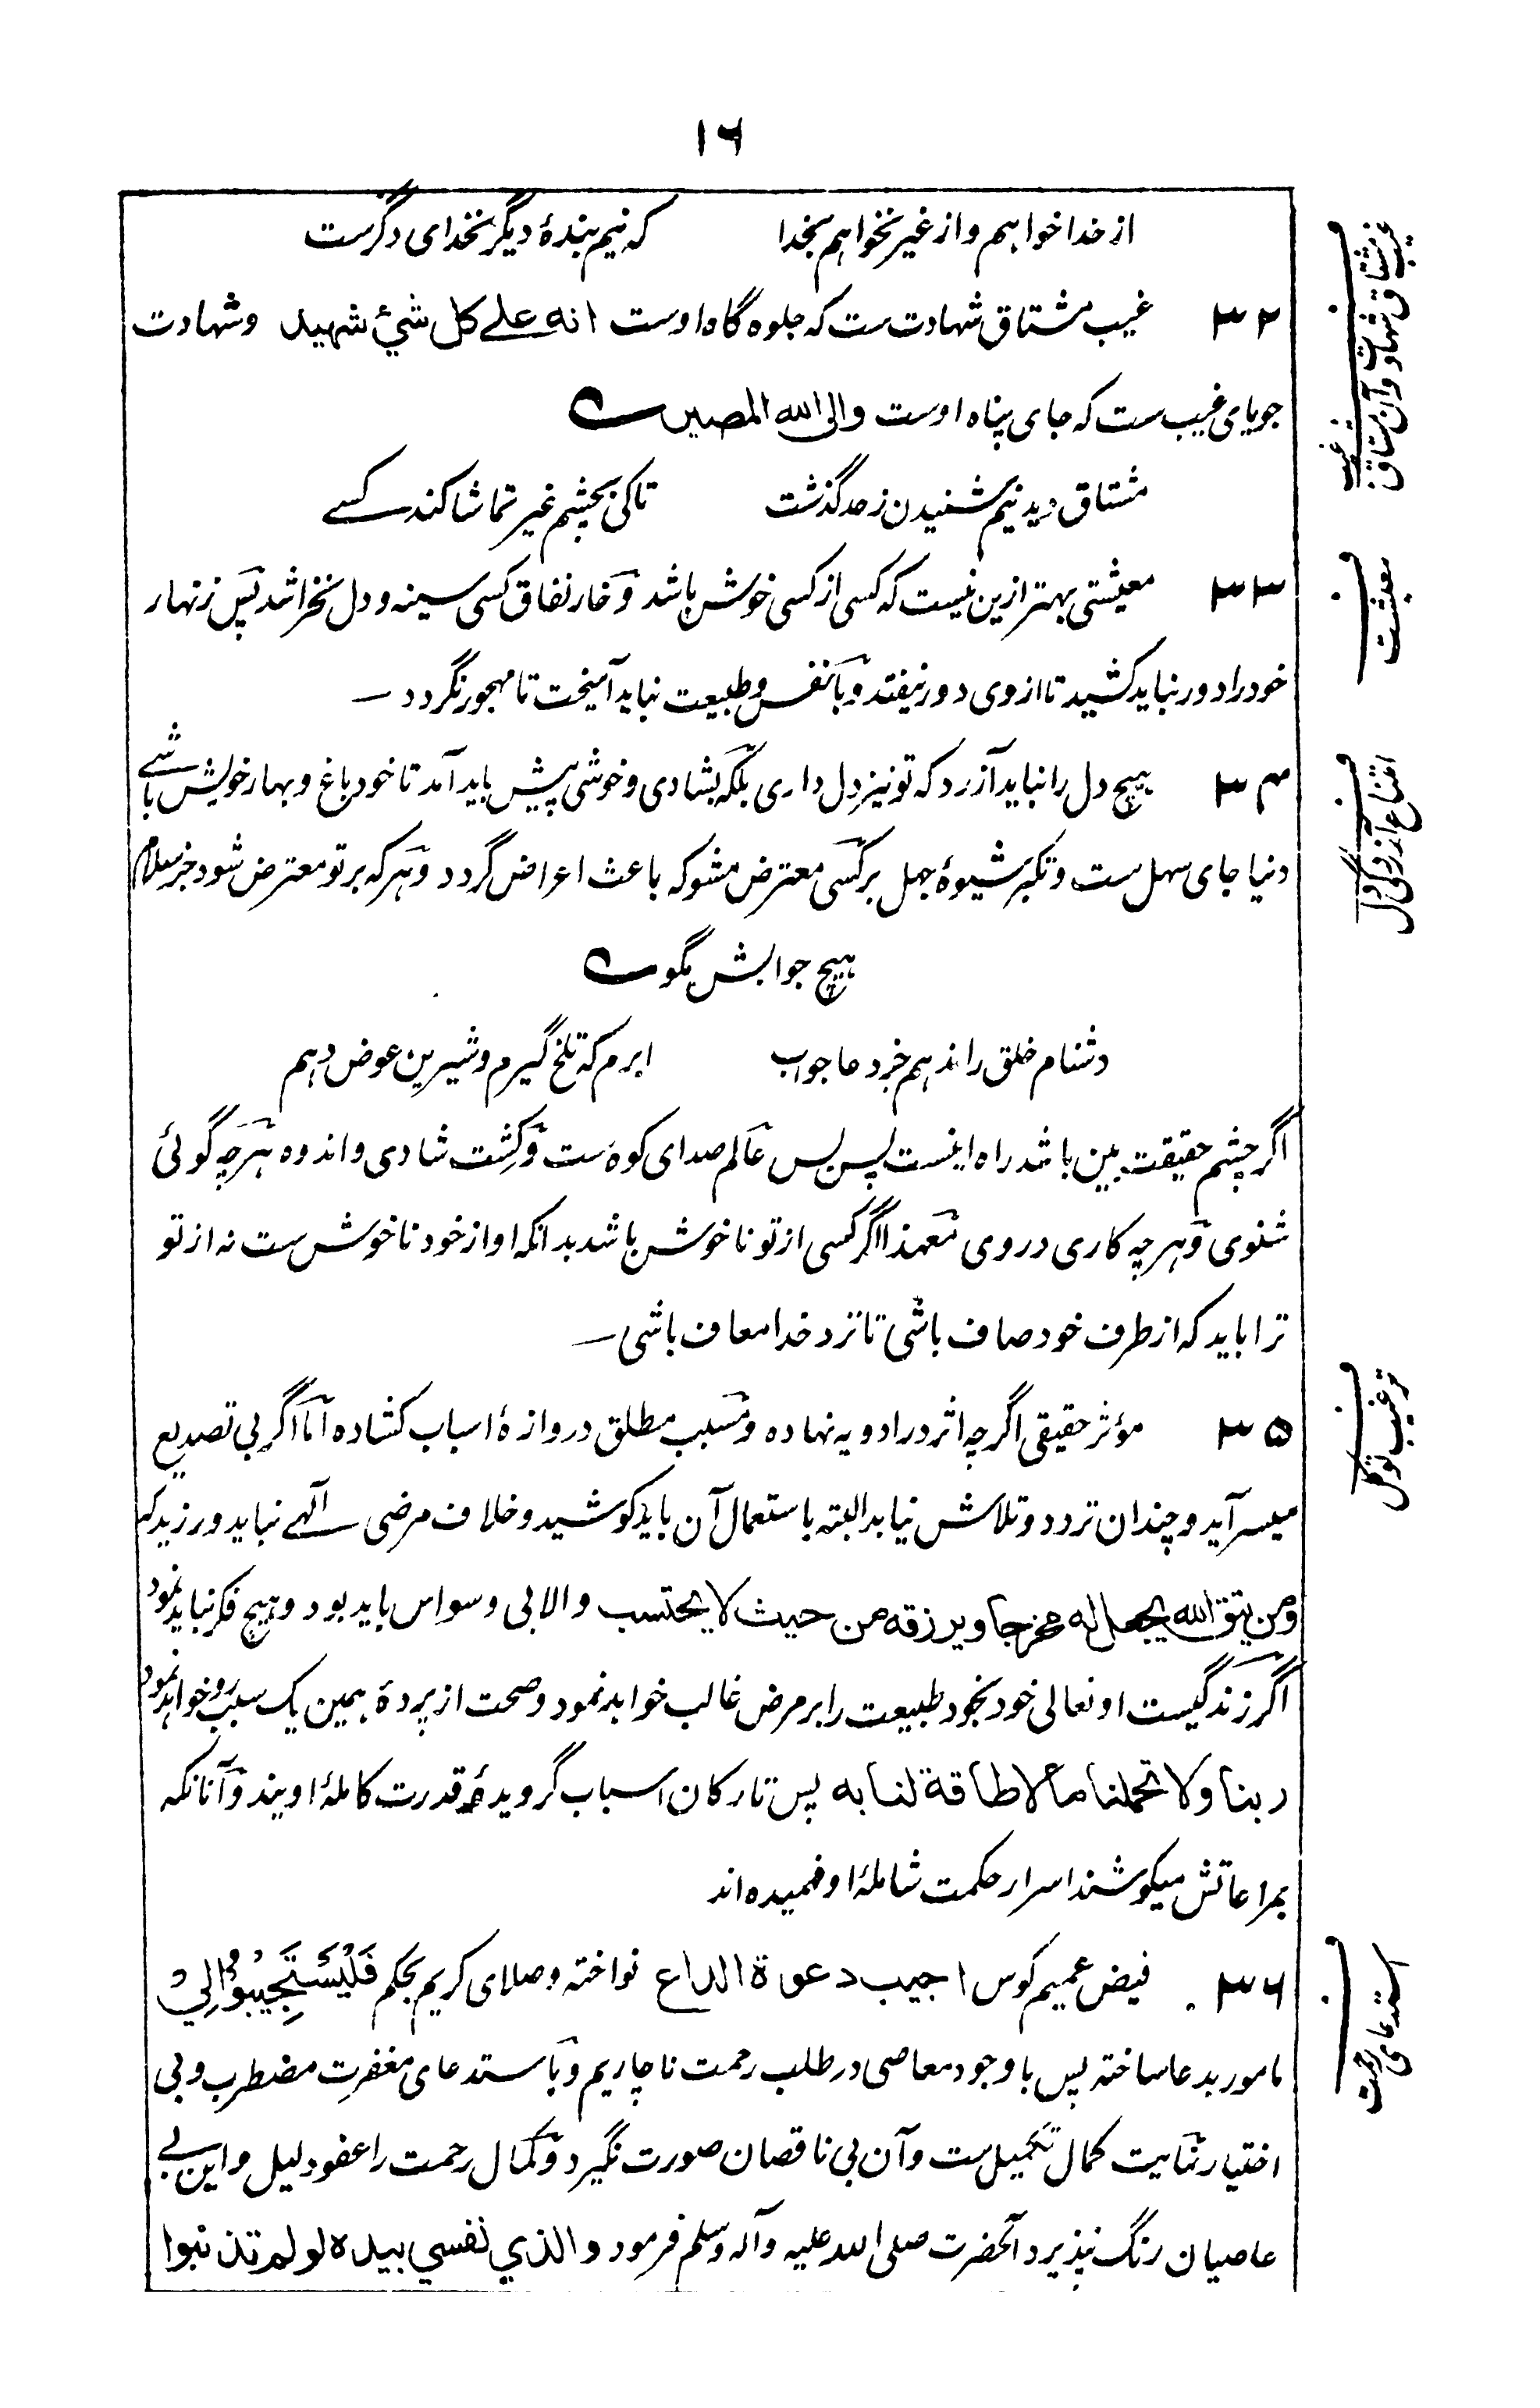 ۱۶
از خدا خواهم و از غیر نخواهم بخدا که نیم بندهٔ دیگر نخدای دگرست
۳۲ غیب مشتاق شهادت ست که جلوه گاه اوست انه علے کل شيء شهید وشهادت
جویای غیب ست که جای پناه اوست والی الله المصیر ؎
مشتاق دیدنیم شنیدن ز حد گذشت تا کی بچشم غیر تماشا کند کسے
۳۳ معیشتی بهتر ازین نیست که کسی از کسی خوش باشد و خار نفاق کسی سینه و دل نخراشد پس زنهار
خود را دور نباید کشید تا از وی دور نیفتد و با نفس و طبیعت نباید آمیخت تا مهجور نگردد ـ
۳۴ هیچ دل را نباید آزرد که تو نیز دل داری بلکه بشادی و خوشی پیش باید آمد تا خود باغ و بهار خویش باشے
دنیا جای سهل ست و تکبر شیوهٔ جهل بر کسی معترض مشو که باعث اعراض گردد و هر که بر تو معترض شود جز سلام
هیچ جوابش مگو ؎
دشنام خلق را ندهم جز دعا جواب ابرم که تلخ گیرم و شیرین عوض دهم
اگر چشم حقیقت بین باشد راه اینست پس بس عالم صدای کوه ست و کشت شادی و اندوه هر چه گوئی
شنوی و هر چه کاری دروی معهذا اگر کسی از تو ناخوش باشد بدانکه او از خود ناخوش ست نه از تو
ترا باید که از طرف خود صاف باشی تا نزد خدا معاف باشی ـ
۳۵ مؤثر حقیقی اگر چه اثر در ادویه نهاده و مسبب مطلق دروازهٔ اسباب کشاده اما اگر بی تصدیع
میسر آید و چندان تردد و تلاش نیابد البته باستعمال آن باید کوشید و خلاف مرضی الٰهے نباید ورزید که
ومن یتق الله یجعل له مخرجا ویرزقه من حیث لا یحتسب والا بی وسواس باید بود و هیچ فکر نباید نمود
اگر زندگیست او تعالی خود بخود طبیعت را بر مرض غالب خواهد نمود و صحت از پردهٔ همین یک سبب رو خواهد نمود
ربنا ولا تحملنا ما لا طاقة لنا به پس تارکان اسباب گرویدهٔ قدرت کاملهٔ اویند و آنانکه
بمراعاتش میکوشند اسرار حکمت شاملهٔ او فهمیده اند
۳۶ فیض عمیم کوس اجیب دعوة الداع نواخته و صلای کریم بحکم فَلْیَسْتَجِیْبُوْا لِیْ
مامور بدعا ساخته پس با وجود معاصی در طلب رحمت ناچاریم و باستدعای مغفرت مضطرب و بی
اختیار نهایت کمال تکمیل ست و آن بی ناقصان صورت نگیرد و کمال رحمت را عفو دلیل و این بے
عاصیان رنگ نپذیرد آنحضرت صلی الله علیه وآله وسلم فرمود والذي نفسي بیده لو لم تذنبوا
غیب مشتاق شهادت وآن مشتاق غیب
معیشت
امتناع آزردگی دل
ترغیب توکل
استدعای رحمت